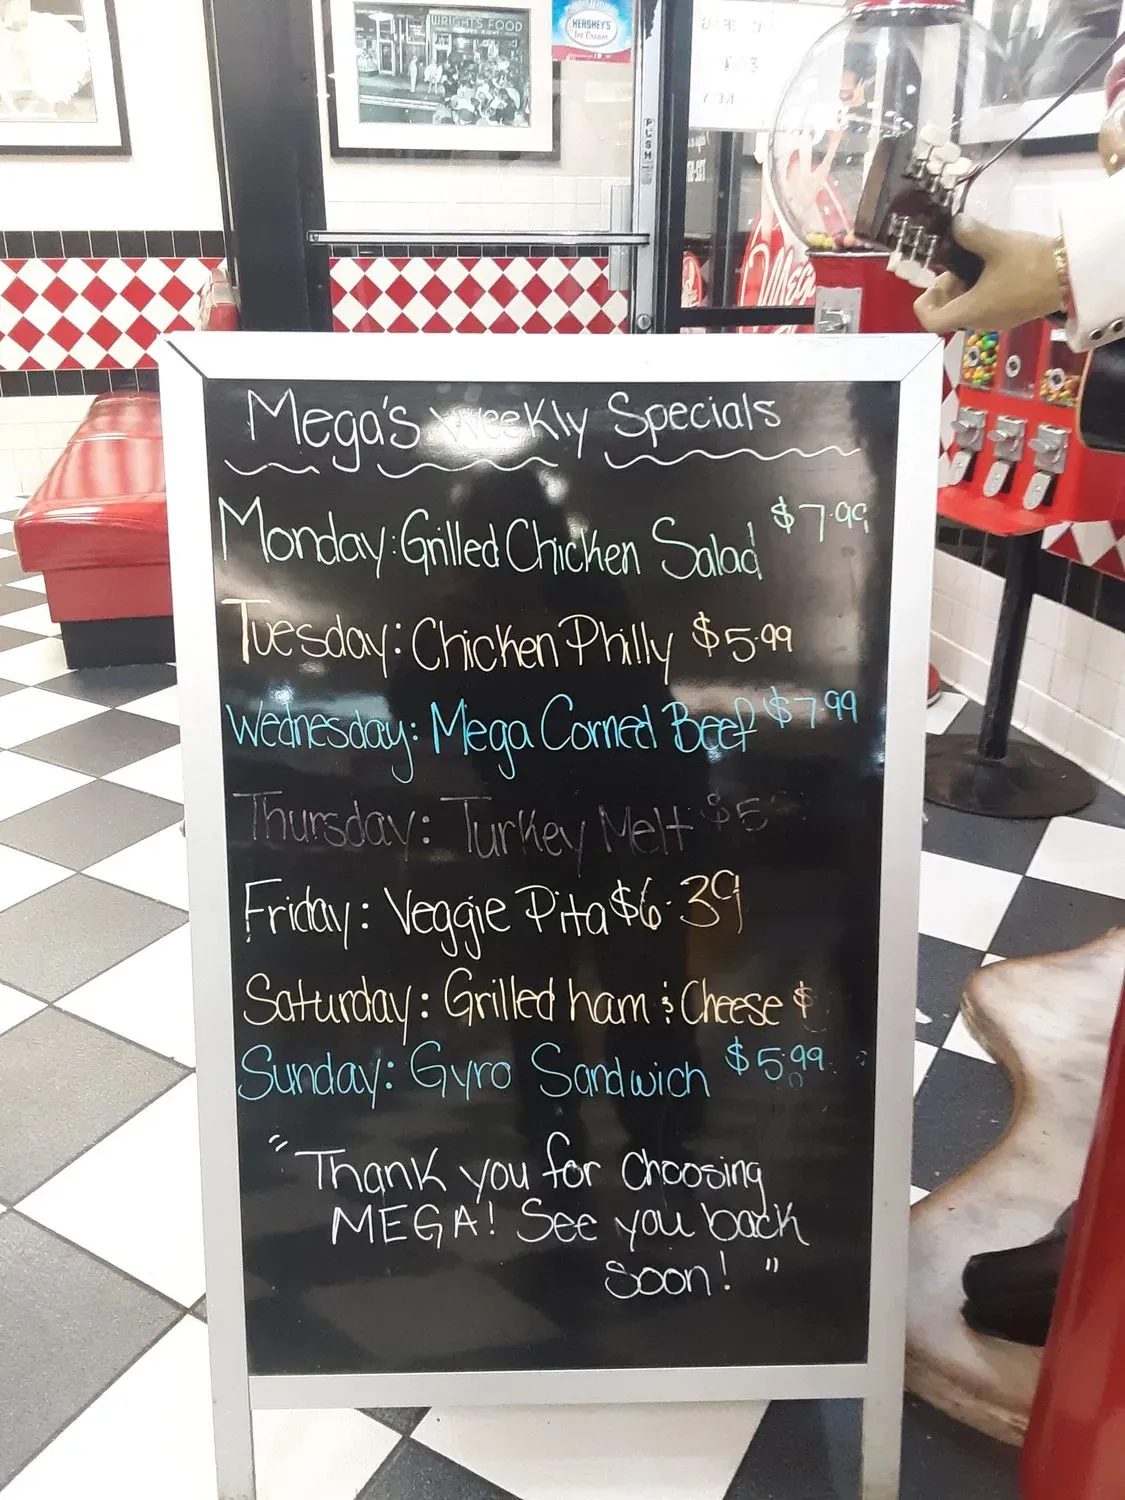 WRIGHT'S FOOD
HERSHEY'S
Ice Cream
PUSH
Mega's Weekly Specials
Monday: Grilled Chicken Salad $7.99
Tuesday: Chicken Philly $5.99
Wednesday: Mega Corned Beef $7.99
Thursday: Turkey Melt $5
Friday: Veggie Pita $6.39
Saturday: Grilled ham & Cheese $
Sunday: Gyro Sandwich $5.99
"Thank you for choosing
MEGA! See you back
soon!"